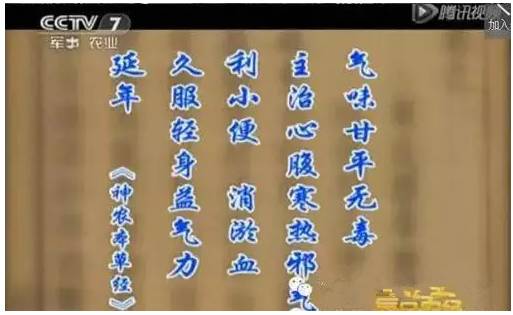 CCTV 7
军事 农业
腾讯视频
加入
气味甘平无毒
主治心腹寒热邪气
利小便 消淤血
久服轻身益气力
延年 《神农本草经》